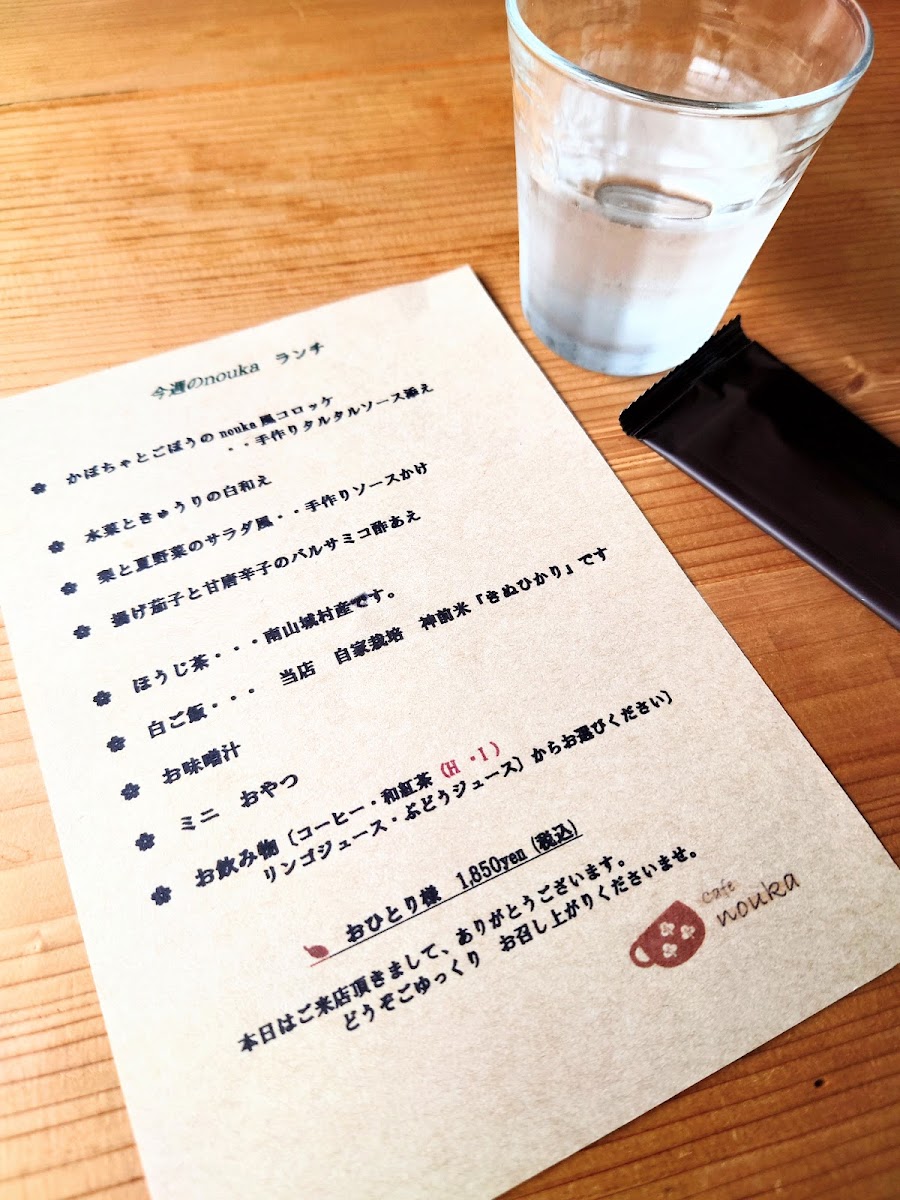 今週のnouka ランチ
かぼちゃとごぼうの nouka 風コロッケ
・・手作りタルタルソース添え
水菜ときゅうりの白和え
梨と夏野菜のサラダ風・・手作りソースかけ
揚げ茄子と甘唐辛子のバルサミコ酢あえ
ほうじ茶・・・南山城村産です。
白ご飯・・・ 当店 自家栽培 神前米『きぬひかり』です
お味噌汁
ミニ おやつ
お飲み物〔コーヒー・和紅茶(H・I)
リンゴジュース・ぶどうジュース〕からお選びください〕
おひとり様 1,850yen (税込)
本日はご来店頂きまして、ありがとうございます。
どうぞごゆっくり お召し上がりくださいませ。
cafe
nouka